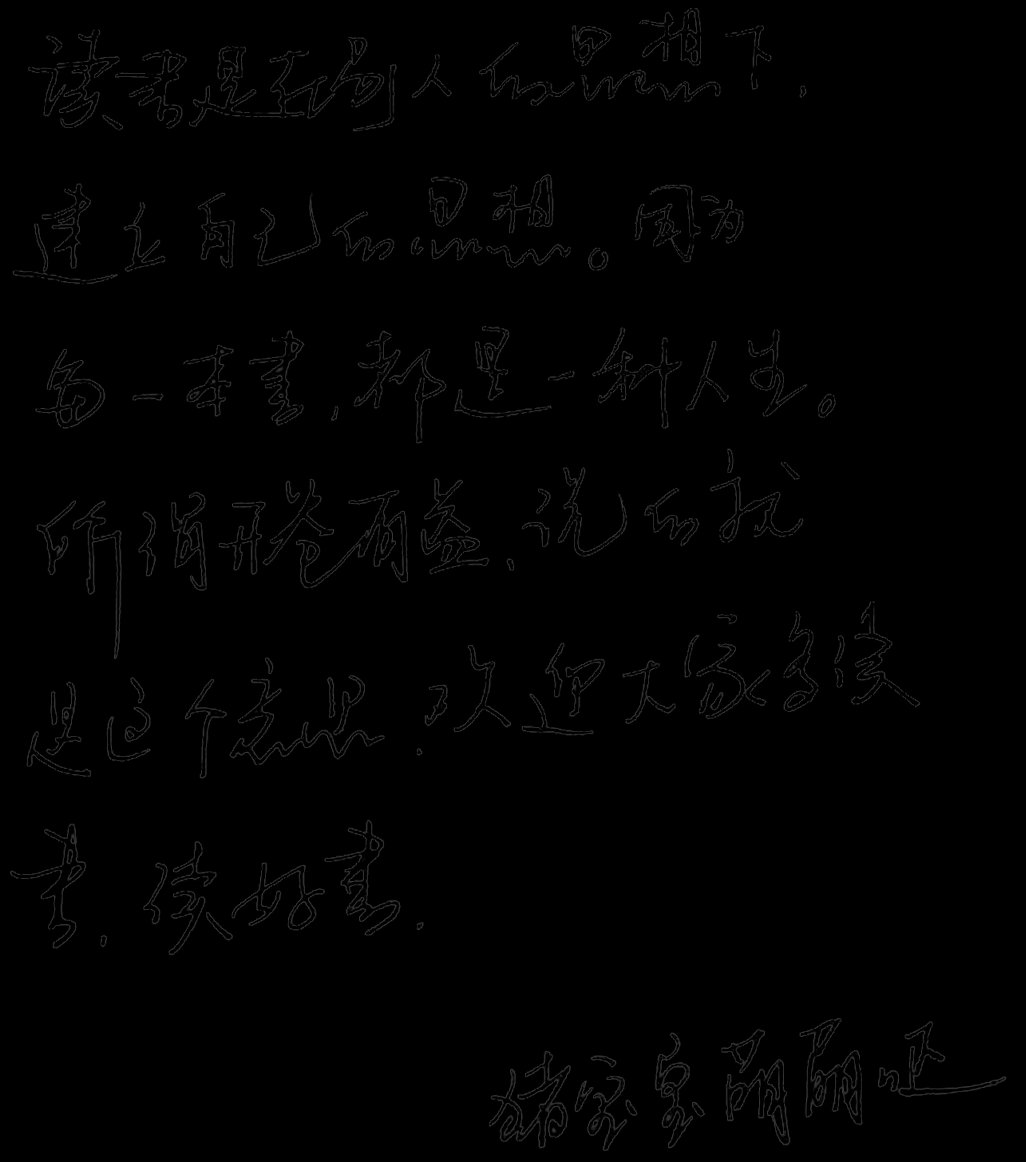 读书是在别人的思想下，
建立自己的思想。因为
每一本書，都是一种人生。
所谓开卷有益，说的就
是这个意思，欢迎大家多读
書，读好書．
猪宝宝萌萌吧